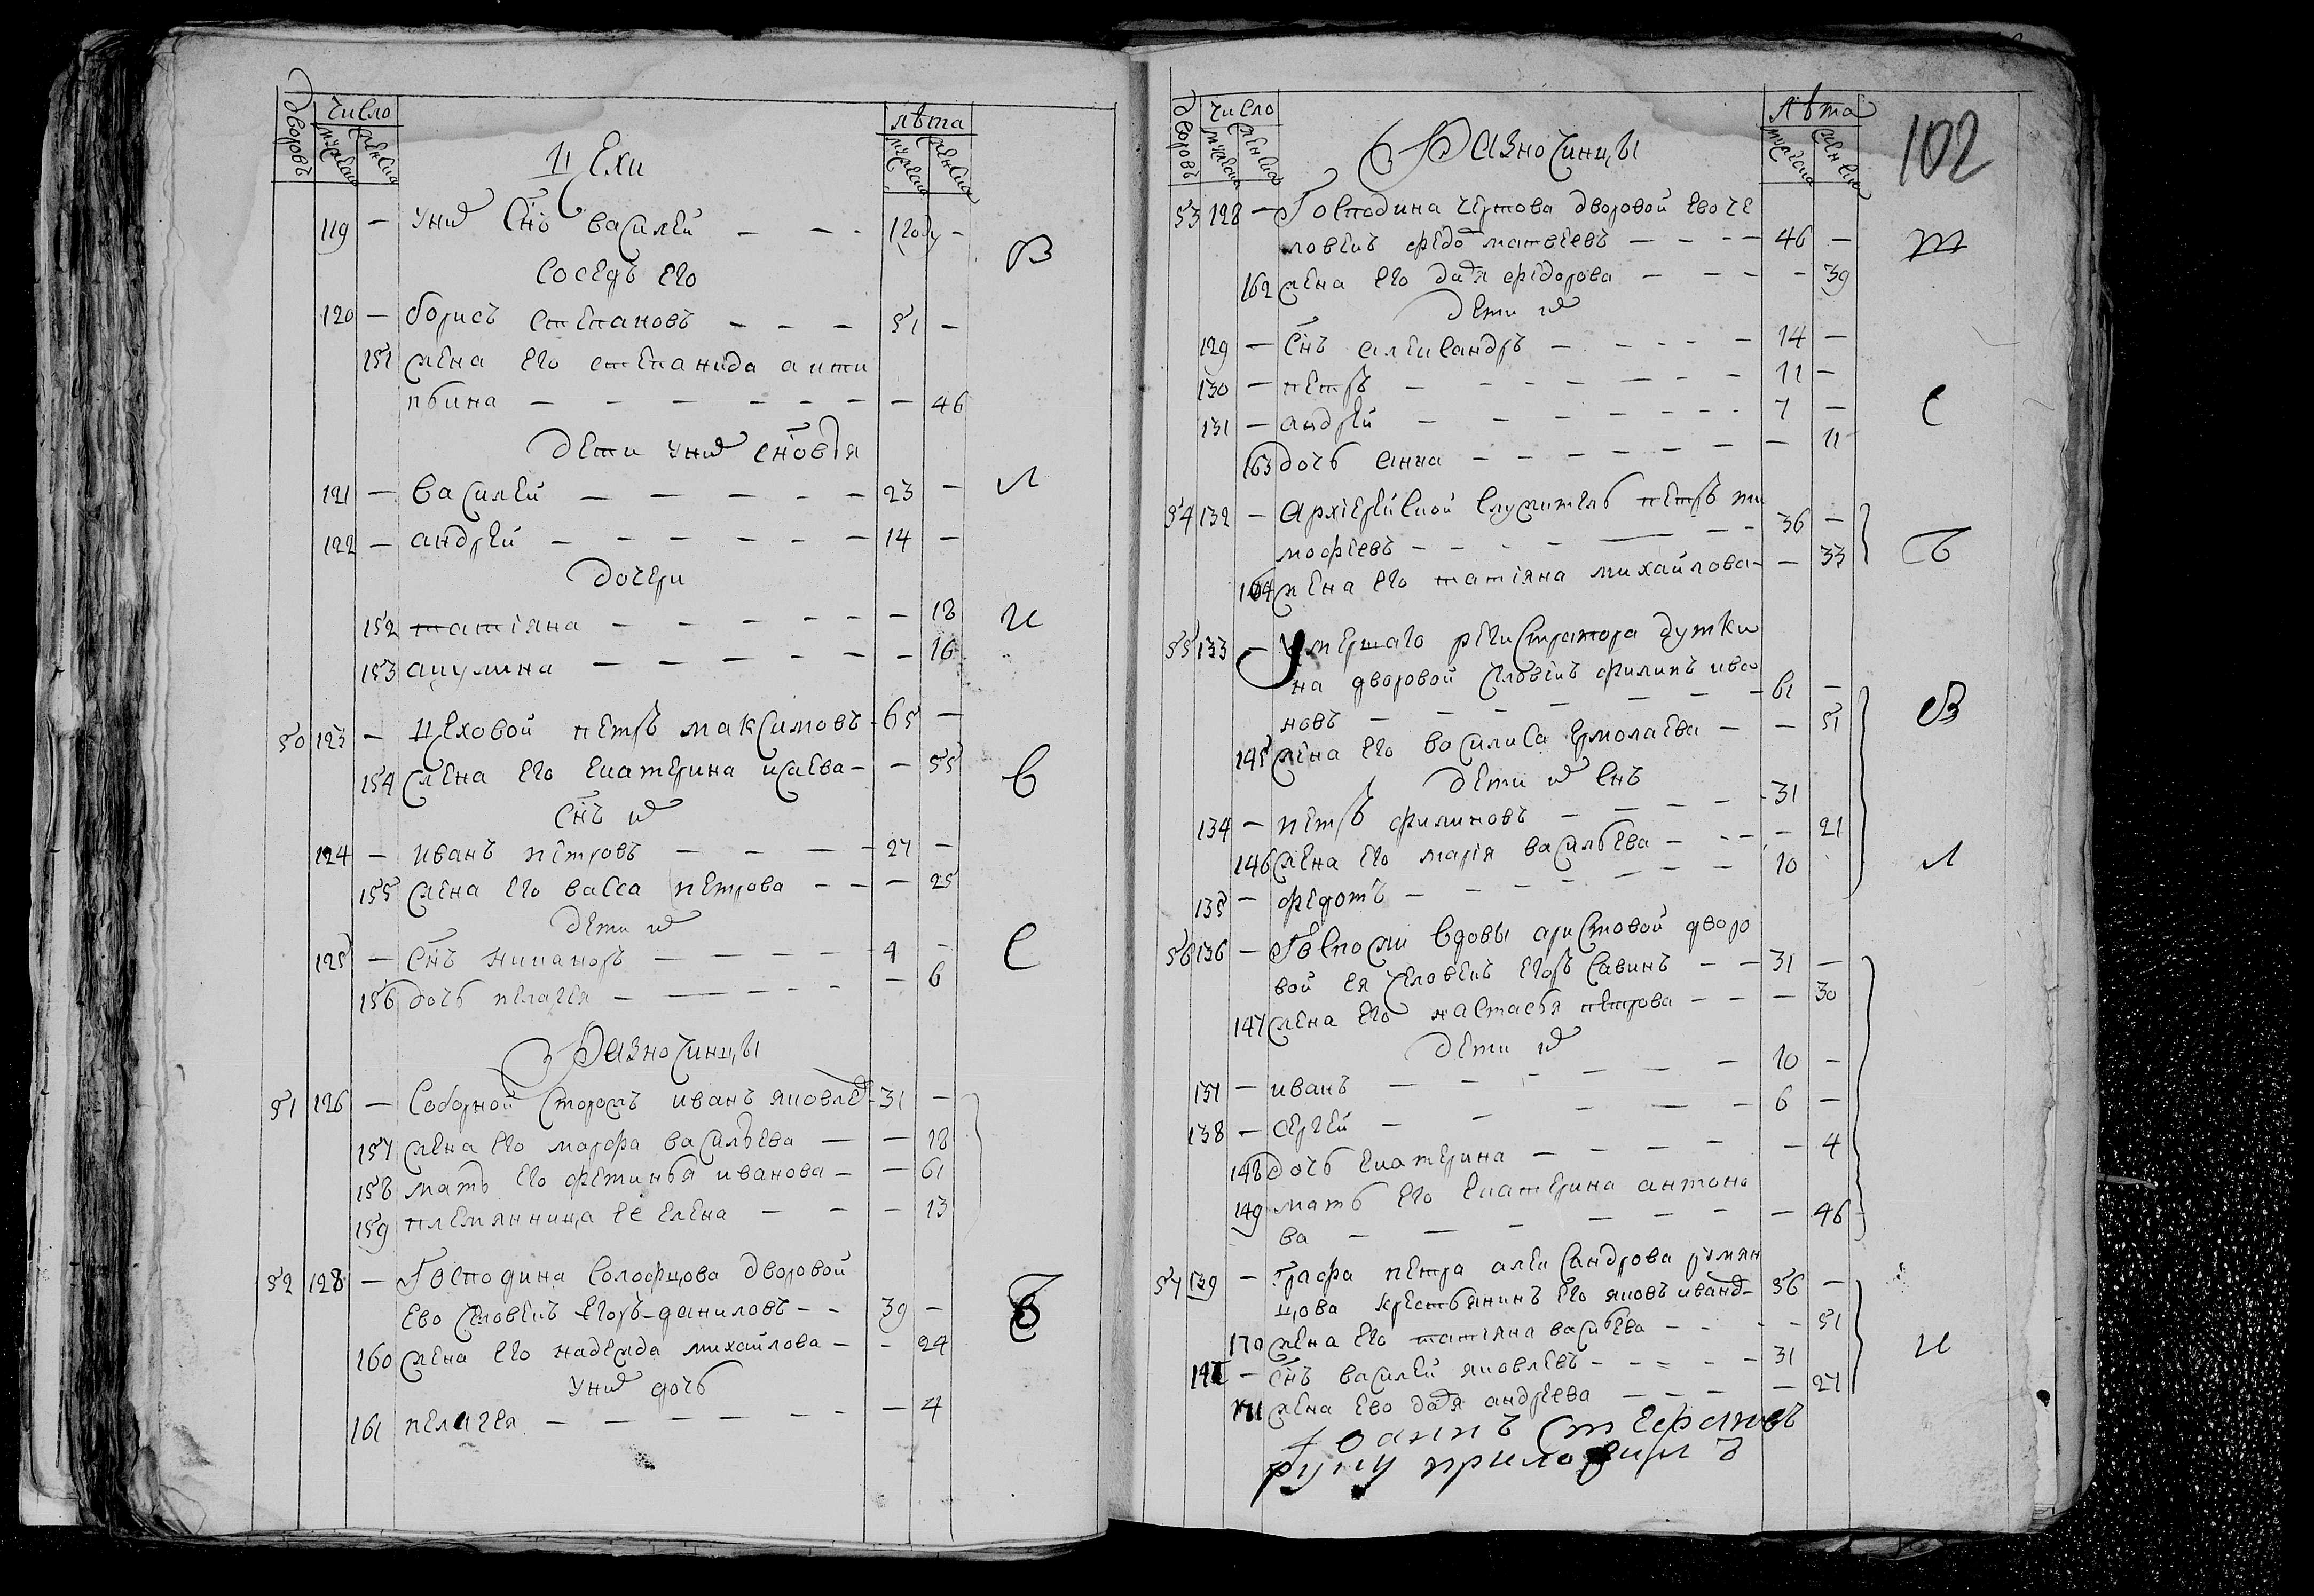 дворовъ число лѣта
мужеска женска мужеска женска
Цехи
119 — у них Снъ василеи — — - 1 году - В
соседъ его
120 — борисъ степановъ — — — 51 —
151 жена его степанида анти
пьина — — — — — — — 46
дети у них сновя
121 — василеи — — — — — 23 — Л
122 — андреи — — — — — — 14 —
дочери
152 татіяна — — — — — — 18 И
153 акулина — — — — — — 16
50 123 — Цеховой петръ максимовъ - 65 —
154 жена его екатерина исаева — — 55 Е
снъ их
124 — иванъ петровъ — — — — 27 —
155 жена его васса петрова — — — 25
дети их
125 — снъ никаноръ — — — — 4 - С
156 дочь пелагея — — — — — — 6
Разночинцы
51 126 — Соборной сторожъ иванъ яковлев - 31 —
157 жена его марфа васильева — — 18
158 мать его фетинья иванова — — 61
159 племянница ее елена — — — 13
52 128 — Господина солофцова дворовой
ево человекъ егоръ даниловъ — - 39 — Б
160 жена его надежда михаилова — - 24
у них дочь
161 пелагея — — — — — — — 4
дворовъ число лѣта
мужеска женска мужеска женска
Разночинцы 102
53 128 — Господина чертова дворовой ево че
ловекъ федо матвеевъ — - - — 46 — Т
162 жена его дадя федорова — — — - 39
дети их
129 — снъ александръ — - - - — 14 —
130 — петръ — — — — — — 11 —
131 — андреи — — — - - - 7 — С
163 дочь анна — — — — — — — 11
54 132 — Архіерейской служитель петръ ти
мофеевъ — — — — — 36 — Ъ
164 жена его татіяна михаилова — — 33
55 133 — Умершаго регистратора дутки
на дворовой человекъ филипъ ива
новъ — — — — — — 61 — В
145 жена его василиса ермолаева — — 51
дети их снъ
134 — петръ филиповъ — — — — 31
146 жена его марія васильева — - - — 21
135 — федотъ — — — — — — 10 Л
56 136 — Госпожи вдовы аристовой дворо
вой ея человекъ егоръ савинъ — — 31 —
147 жена его настасья петрова — — — 30
дети их
137 — иванъ — — - — — — 10 —
138 — сергеи — — — — — 6 —
148 дочь екатерина — — — — — 4
149 мать его екатерина антоно
ва — — — — — — — 46
57 139 — Графа петра александрова румян
цова крестьянинъ его яковъ иванов — 56 —
170 жена его татіяна васильева — - - — 51
141 — снъ василеи яковлевъ — - - - — 31 И
171 жена ево дадя андреева — — — — 27
Іоаннъ Стефановъ
руку приложилъ